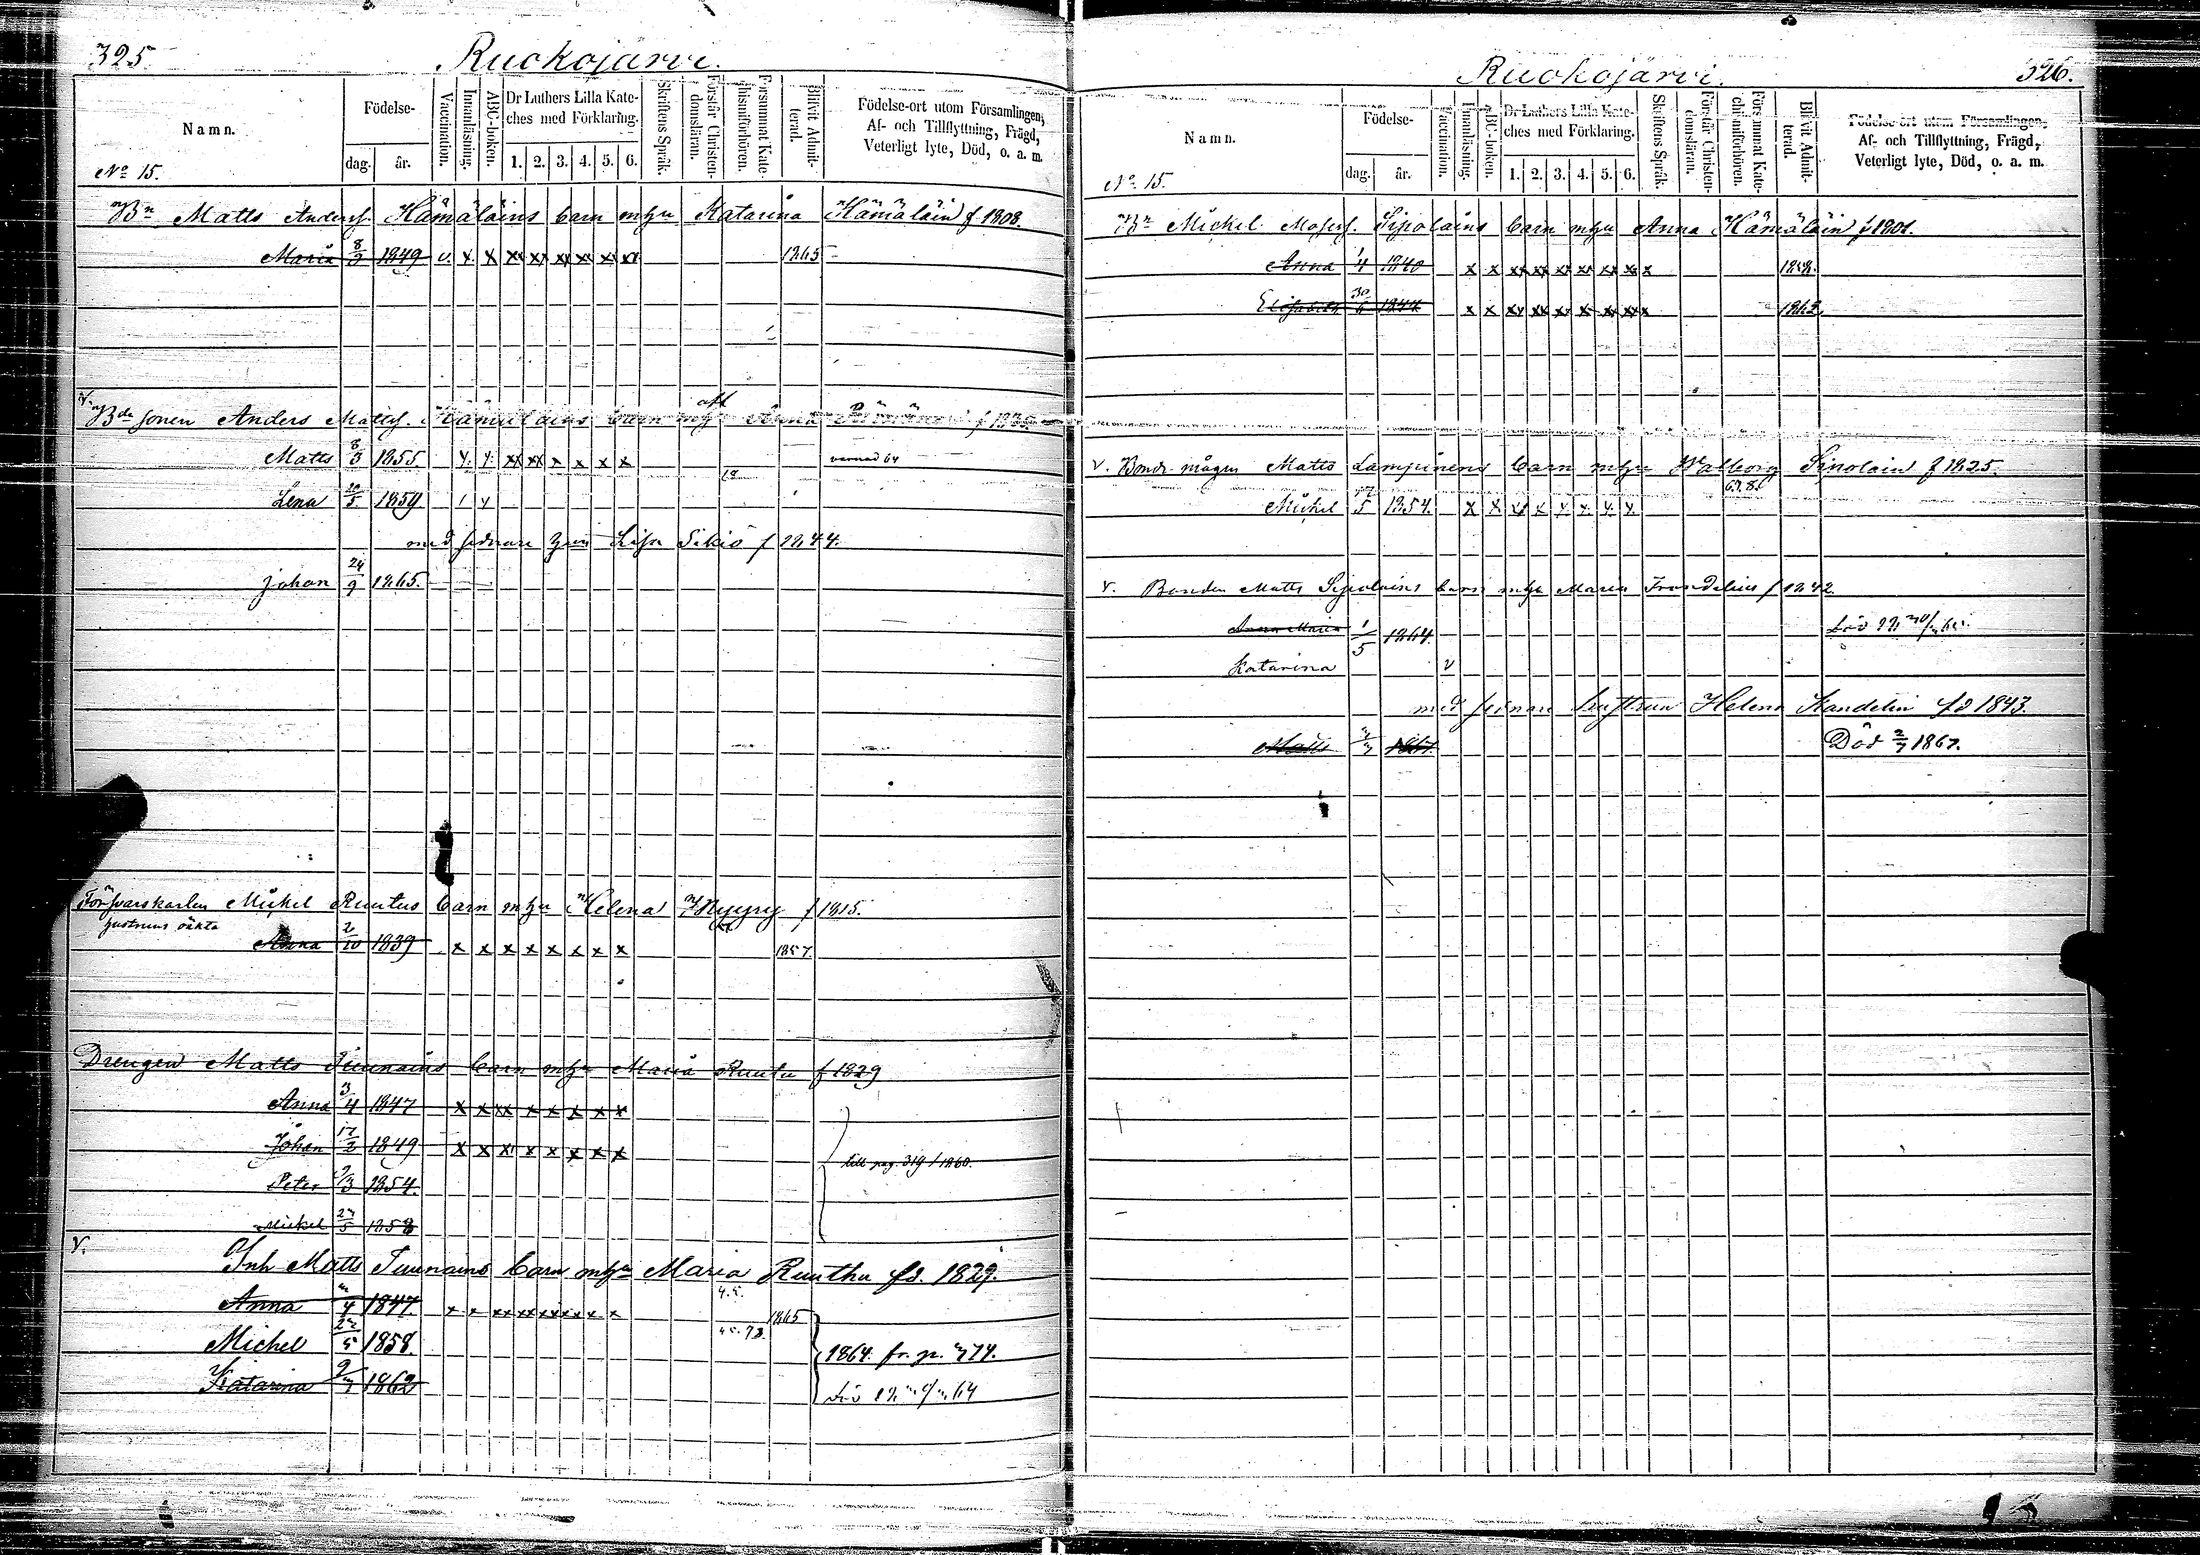 325.
Ruokojärvi.
Namn.
Födelse-
dag. år.
Vaccination.
Innanläsning.
ABC-boken.
Dr Luthers Lilla Kate-
ches med Förklaring.
1. 2. 3. 4. 5. 6.
Skriftens Språk.
Förstår Christen-
domsläran.
Försummat Kate-
chismiförhören.
Blifvit Admit-
terad.
Födelse-ort utom Församlingen,
Af- och Tillflyttning, Frägd,
Veterligt lyte, Död, o. a. m.
No 15.
Bn Matts Anderss. Hämäläins barn m hu Katarina Hämäläin f 1808.
Maria 8/3 1849 v. x x xx xx xx xx xx xx 1865
v. Bde sonen Anders Mattss. Hämäläins barn m h Anna f 1835
Matts 8/3 1855 x x xx xx x x x x
Lena 20/5 1859
med sednare hun Lisa Sikiö f 1844.
Johan 24/9 1865.
Försvarskarlen Michel Ruutus barn m hu Helena Nyyry f 1815.
hustruns oäkta
Anna 2/10 1839 x x x x x x x x 1857.
Drengen Matts Tuunains barn m hu Maria Ruutu f 1829
Anna 3/4 1847 x x xx x x x x x
Johan 17/2 1849 x x x x x x x x
till pag. 319/1860.
Peter 9/3 1854.
Mickel 27/5 1858
v. Inh Matts Tuunains barn m hu Maria Ruuthu fd. 1829.
Anna 1847 x x xx xx xx x x x 1865
Michel 27/5 1858. 1864. fr. p. 374.
Katarina 1862
326.
Ruokojärvi.
Namn.
Födelse-
dag. år.
Vaccination.
Innanläsning.
ABC-boken.
Dr Luthers Lilla Kate-
ches med Förklaring.
1. 2. 3. 4. 5. 6.
Skriftens Språk.
Förstår Christen-
domsläran.
Försummat Kate-
chismiförhören.
Blifvit Admit-
terad.
Födelse-ort utom Församlingen,
Af- och Tillflyttning, Frägd,
Veterligt lyte, Död, o. a. m.
No 15.
Bn Michel Mosess. Sipolains barn m hu Anna Hämäläin f 1801.
Anna 1/4 1840 x x xx xx xx xx xx xx x 1858.
Elisabeth 30/6 1844 x x xx xx xx x xx xx x 1862
v. Bonde mågen Matts Lampinens barn m hu Walborg Sipolain f 1825.
Michel 1854. x x xx x x x x x
v. Bonden Matts Sipolains barn m hu Maria Frondelius f 1842.
Anna Maria 1/5 1864.
Katarina v
med sednare hustrun Helena Skandelin fd 1843.
Matts 1867. Död 2/7 1867.